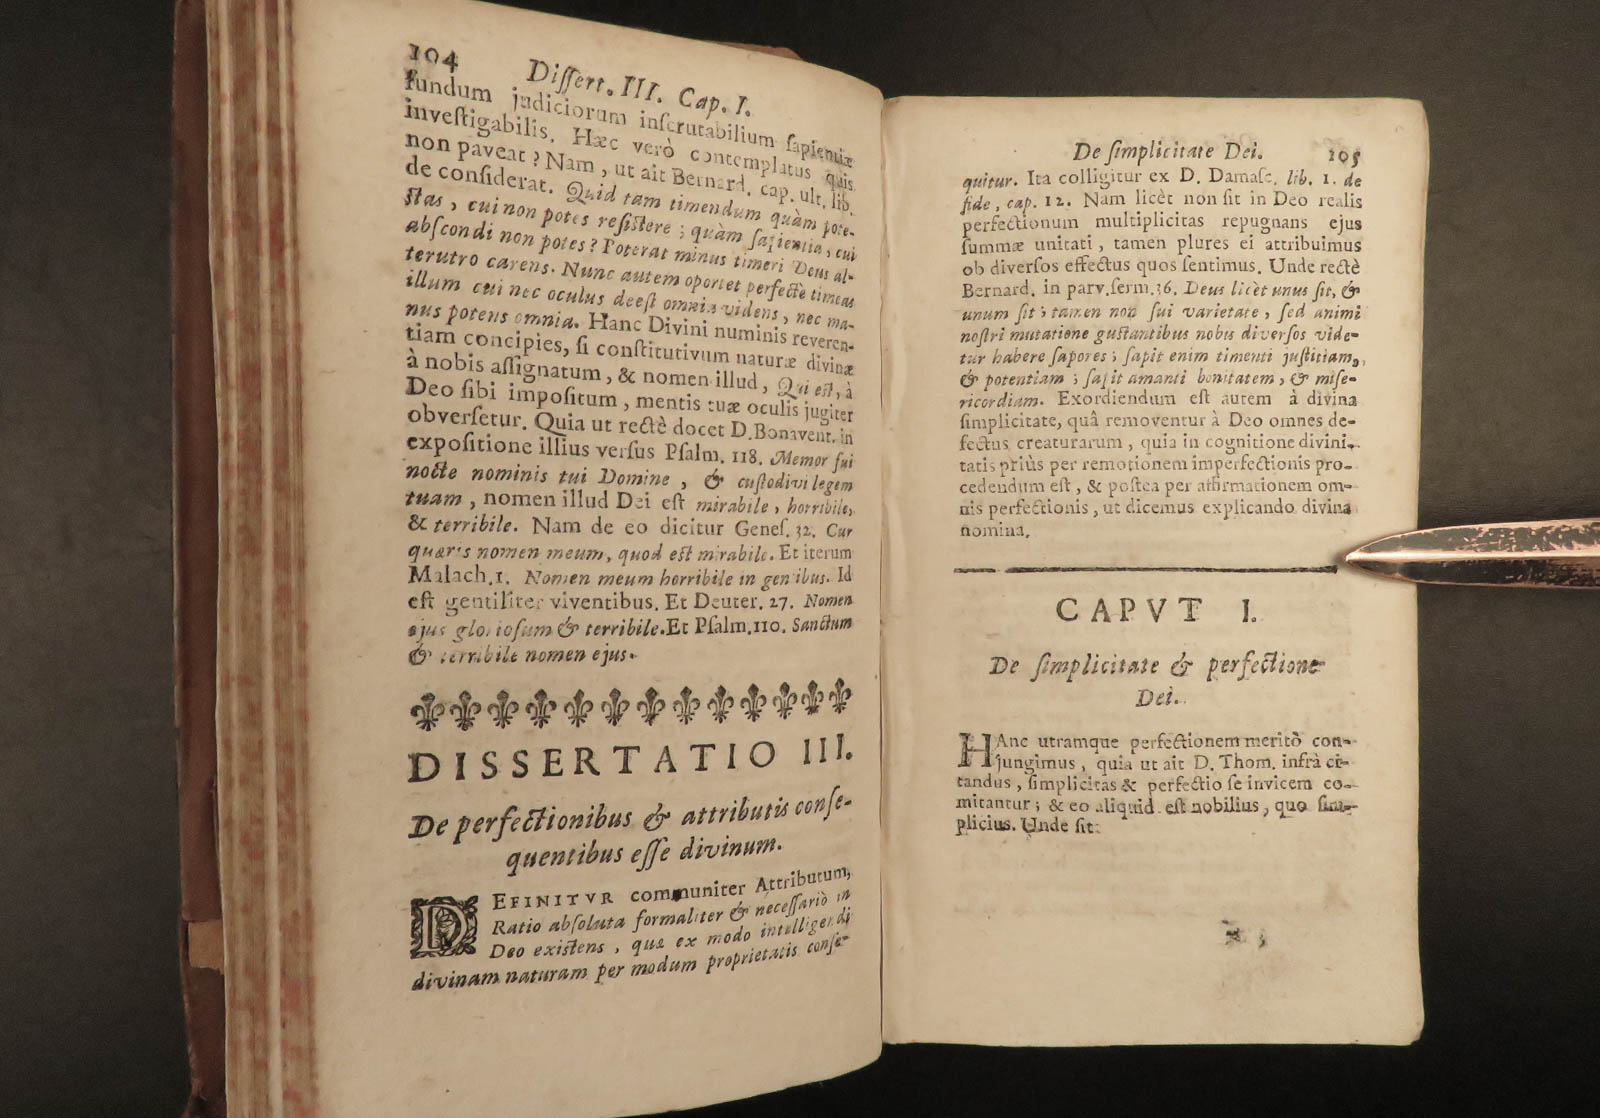 104 Dissert. III. Cap. I.
fundum judiciorum inscrutabilium sapientiæ
investigabilis. Hæc verò contemplatus quis
non paveat? Nam, ut ait Bernard. cap. ult. lib.
de considerat. Quid tam timendum quàm pote-
stas, cui non potes resistere; quàm sapientia, cui
abscondi non potes? Poterat minus timeri Deus al-
terutro carens. Nunc autem oportet perfectè timeas
illum cui nec oculus deest omnia videns, nec ma-
nus potens omnia. Hanc Divini numinis reveren-
tiam concipies, si constitutivum naturæ divinæ
à nobis assignatum, & nomen illud, Qui est, à
Deo sibi impositum, mentis tuæ oculis jugiter
obversetur. Quia ut rectè docet D. Bonavent. in
expositione illius versus Psalm. 118. Memor fui
nocte nominis tui Domine, & custodivi legem
tuam, nomen illud Dei est mirabile, horribile,
& terribile. Nam de eo dicitur Genes. 32. Cur
quæris nomen meum, quod est mirabile. Et iterum
Malach. 1. Nomen meum horribile in gentibus. Id
est gentiliter viventibus. Et Deuter. 27. Nomen
ejus gloriosum & terribile. Et Psalm. 110. Sanctum
& terribile nomen ejus.
DISSERTATIO III.
De perfectionibus & attributis conse-
quentibus esse divinum.
DEFINITVR communiter Attributum,
Ratio absoluta formaliter & necessariò in
Deo existens, quæ ex modo intelligendi
divinam naturam per modum proprietatis conse-
De simplicitate Dei. 105
quitur. Ita colligitur ex D. Damasc. lib. 1. de
fide, cap. 12. Nam licèt non sit in Deo realis
perfectionum multiplicitas repugnans ejus
summæ unitati, tamen plures ei attribuimus
ob diversos effectus quos sentimus. Unde rectè
Bernard. in parv. serm. 36. Deus licèt unus sit, &
unum sit; tamen non sui varietate, sed animi
nostri mutatione gustantibus nobis diversos vide-
tur habere sapores; sapit enim timenti justitiam,
& potentiam; sapit amanti bonitatem, & mise-
ricordiam. Exordiendum est autem à divina
simplicitate, quâ removentur à Deo omnes de-
fectus creaturarum, quia in cognitione divini-
tatis priùs per remotionem imperfectionis pro-
cedendum est, & postea per affirmationem om-
nis perfectionis, ut dicemus explicando divina
nomina.
CAPVT I.
De simplicitate & perfectione
Dei.
HAnc utramque perfectionem meritò con-
jungimus, quia ut ait D. Thom. infrà ci-
tandus, simplicitas & perfectio se invicem co-
mitantur; & eo aliquid est nobilius, quo sim-
plicius. Unde sit